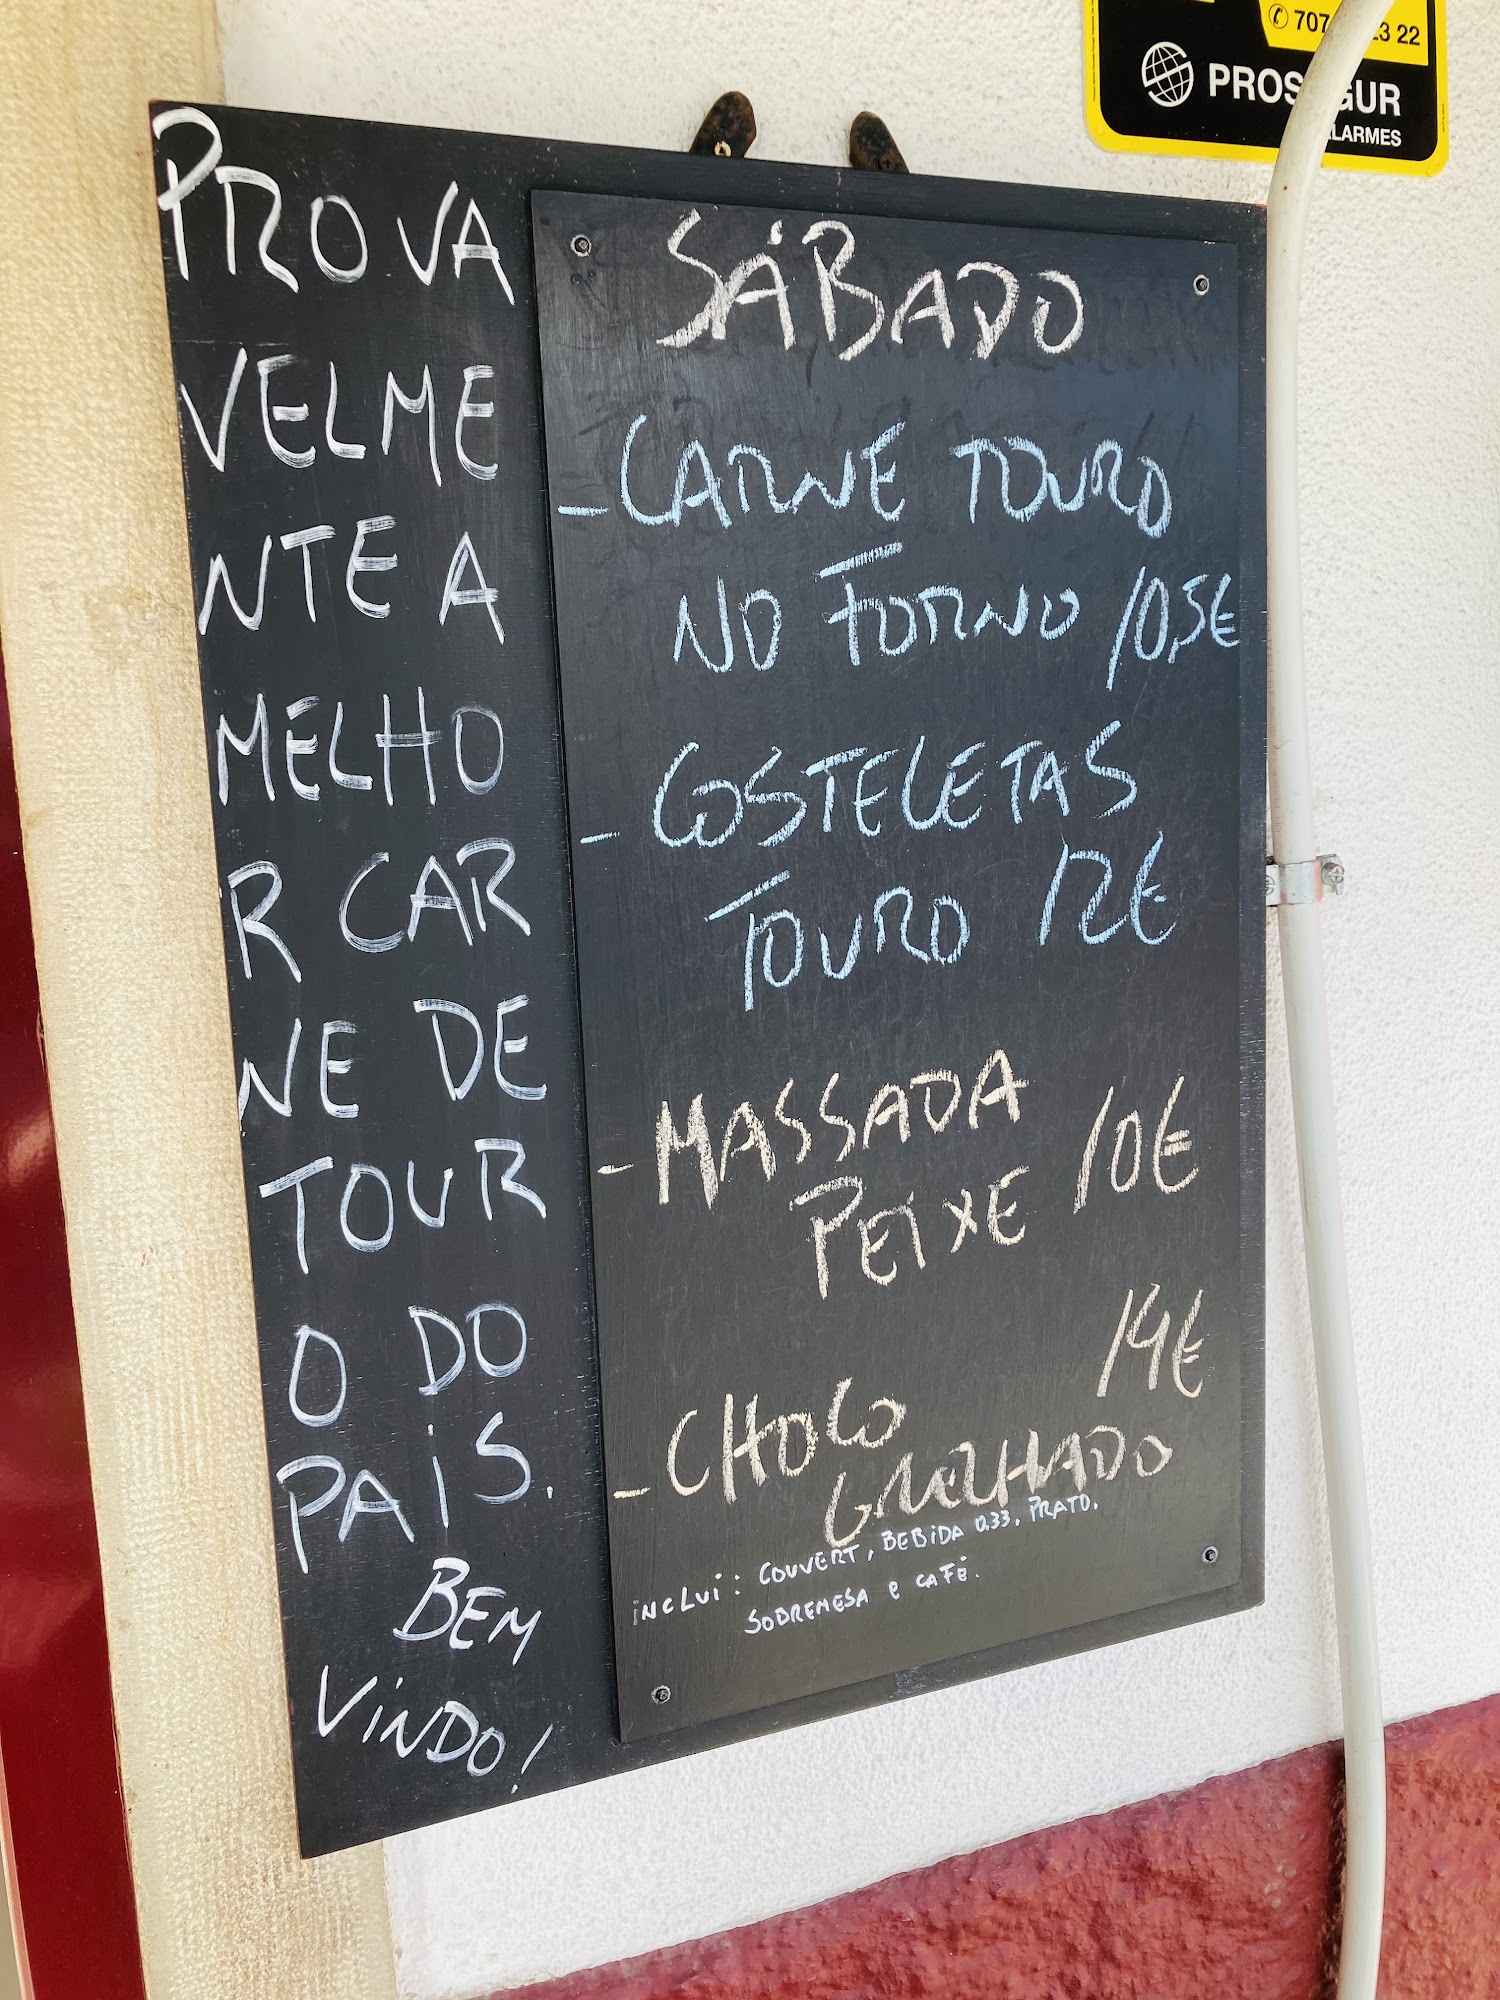 PROVA
VELME
NTE A
MELHO
R CAR
NE DE
TOUR
O DO
PAiS.
BEM
ViNDO!
SÁBADO
- CARNE TOURO
NO FORNO 10,5€
- COSTELETAS
TOURO 12€
- MASSADA
PEiXE 10€
14€
- CHOCO
GRELHADO
iNCLUi: COUVERT, BEBiDA 0.33. PRATO.
SOBREMESA e CAFÉ.
707 23 22
PROSEGUR
ALARMES